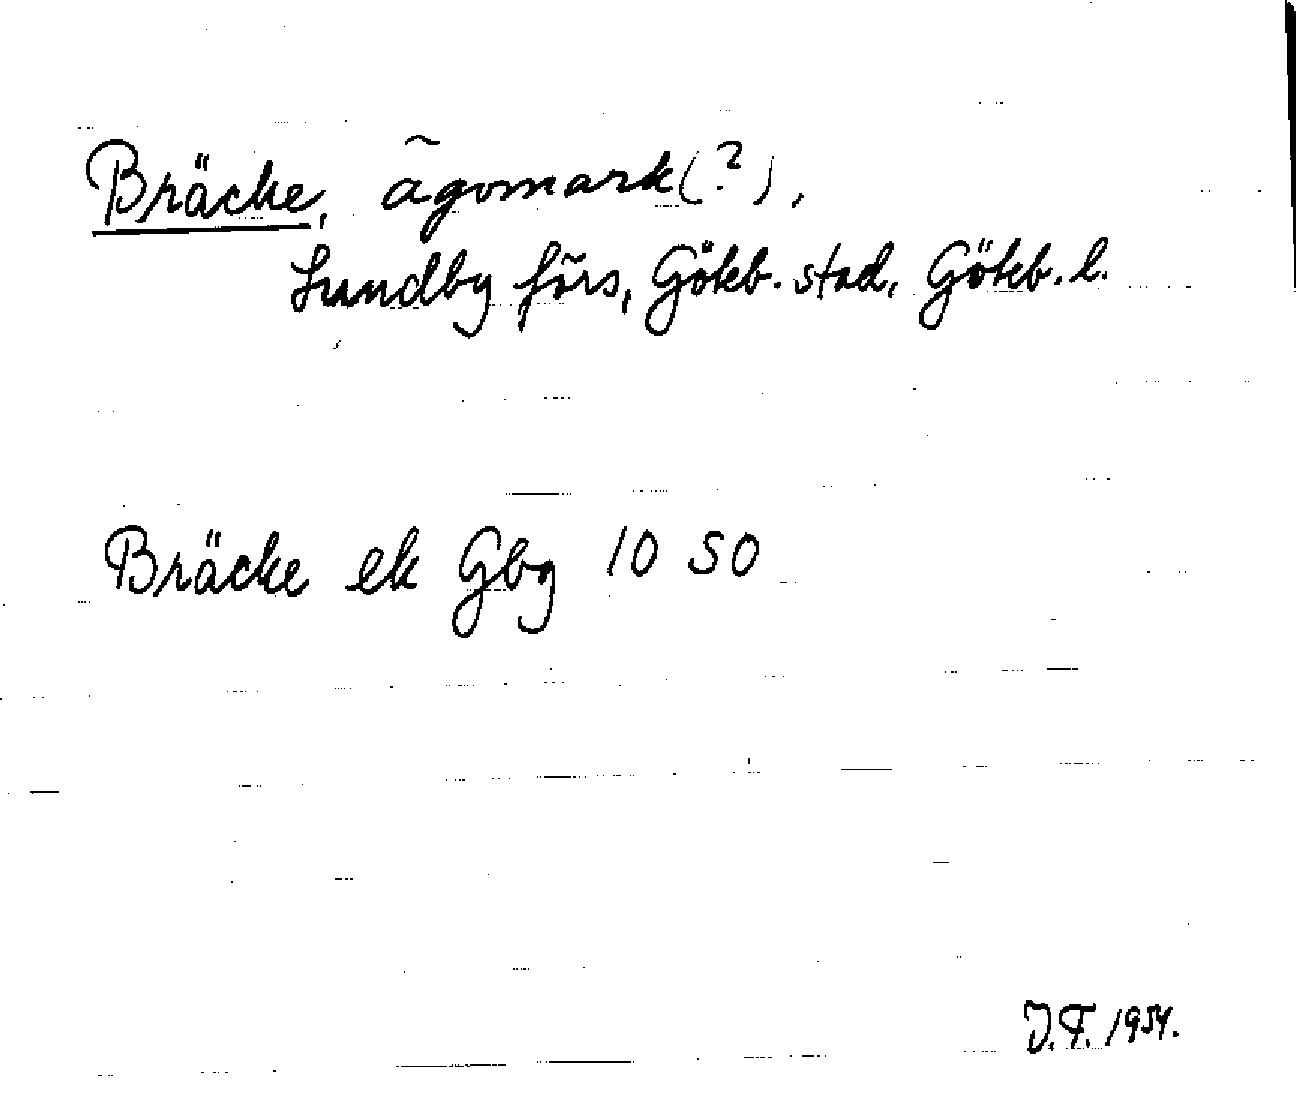 Bräcke, ägomark (?),
Lundby förs, Göteb. stad, Göteb. l.
Bräcke ek Gbg 10 SO
J.F. 1954.